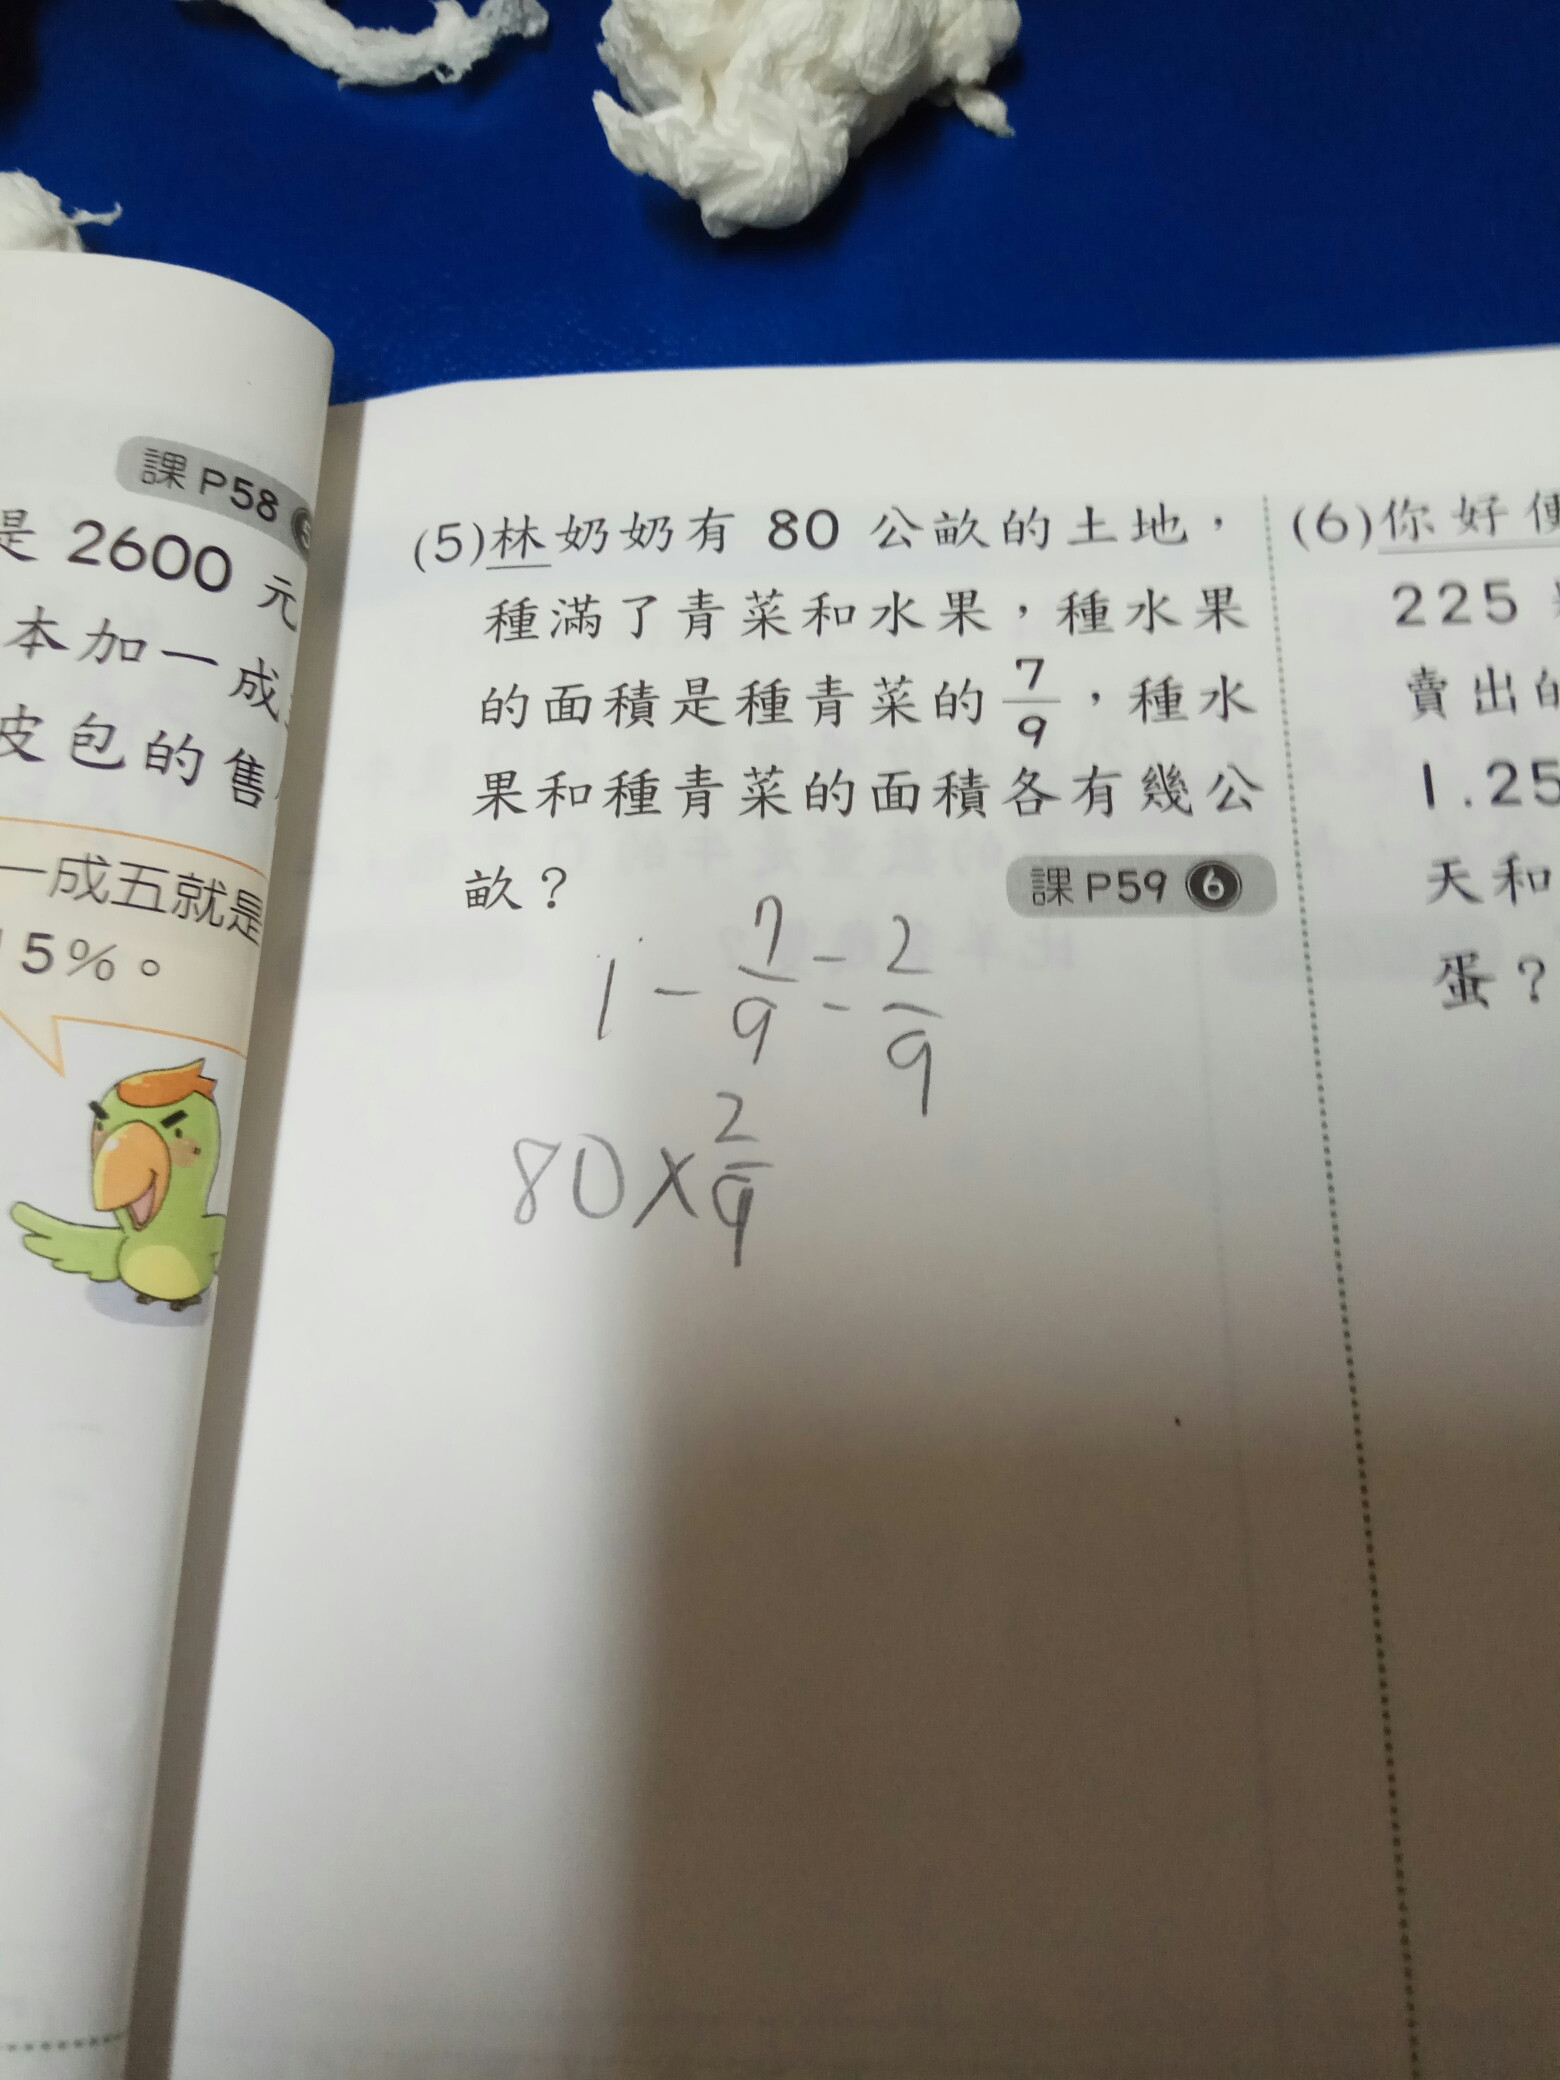 課P58
是 2600 元
本加一成
皮包的售
一成五就是
15%。
(5)林奶奶有 80 公畝的土地,
種滿了青菜和水果,種水果
的面積是種青菜的7/9,種水
果和種青菜的面積各有幾公
畝?
課P59 6
1 - 7/9 = 2/9
80 × 2/9
(6)你好
225
賣出的
1.25
天和
蛋?